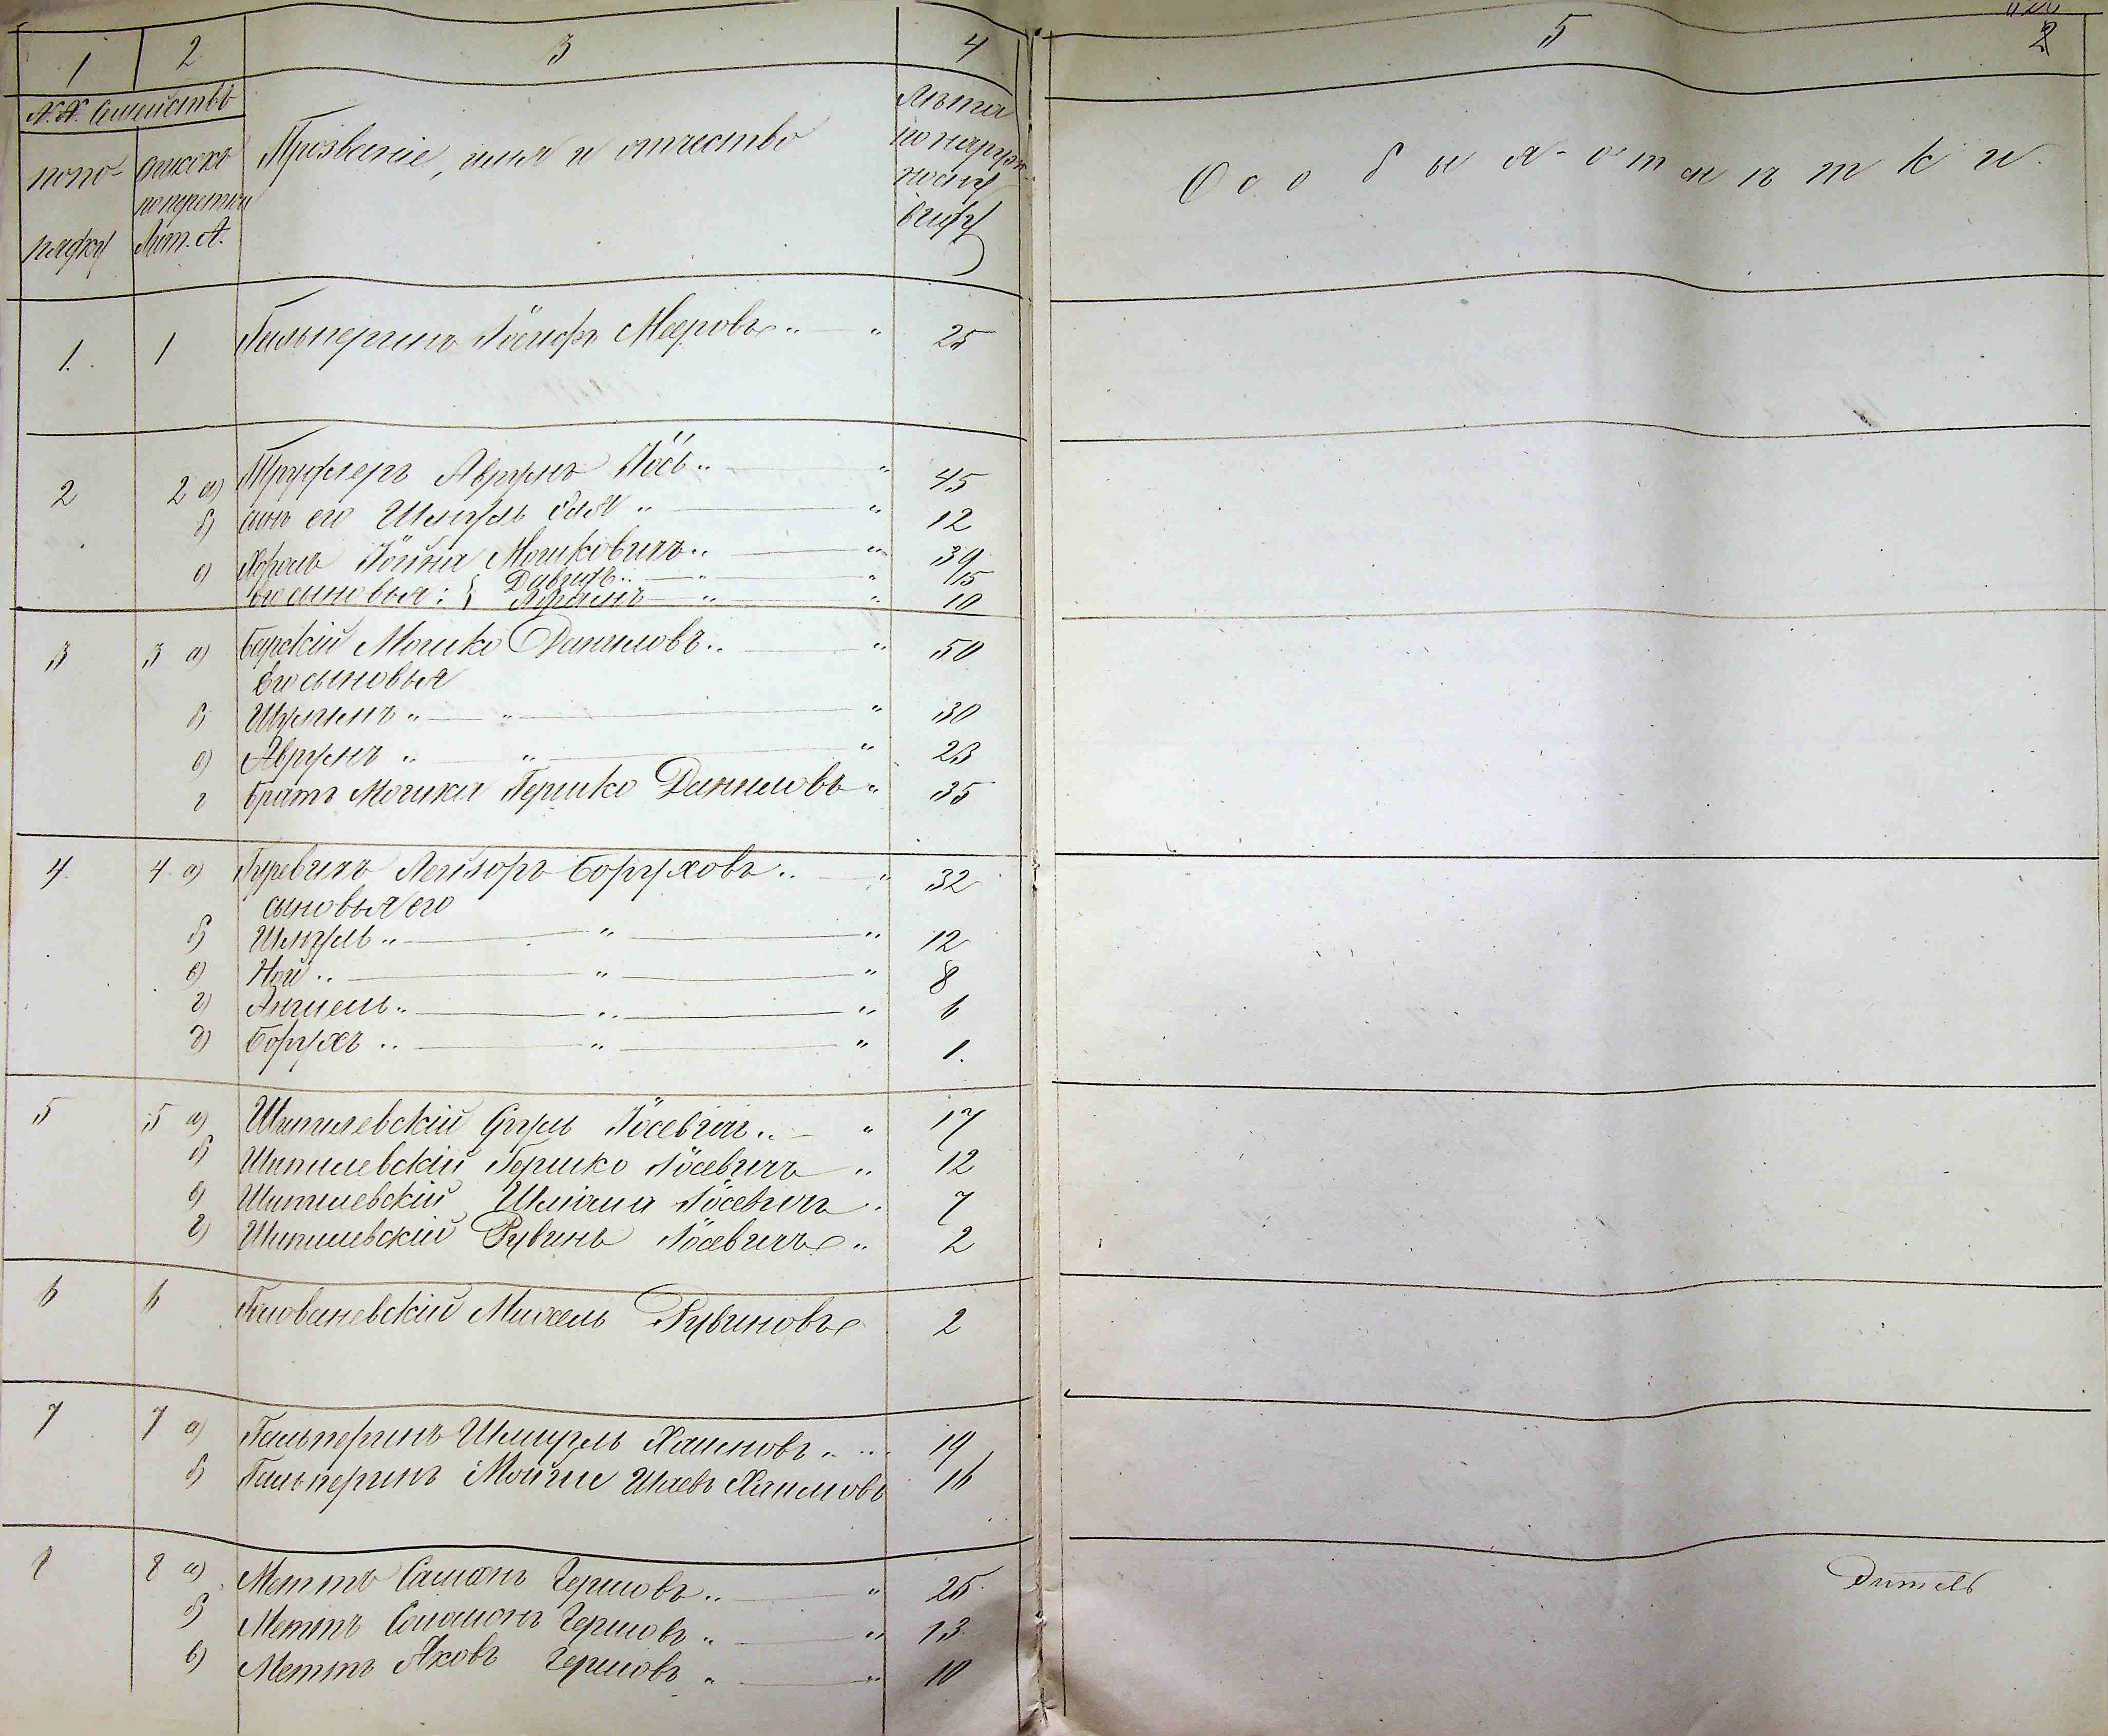 1 2 3 4 5 2
№.№. Семействъ
по по-
рядку
списокъ
по переписи
Лит. А.
Прозваніе, имя и отчество
Лѣта
по наруж-
ному
виду
Особыя отмѣтки.
1. 1 Гальперинъ Іосифъ Мееровъ 25
2 2 а) Аврумъ Іось 45
б) сынъ его Шмуль 12
в) Мошковичъ 39
Его сыновья: { Давидъ 15
10
3 3 а) Барскій Мошко Даниловъ 50
Его сыновья
б) 30
в) Аврумъ 23
г Братъ Мошка Гершко Даниловъ 35
4 4 а) Гуревичъ Лейзоръ Боруховъ 32
сыновья его
б) Шмуль 12
в) Ной 8
г) Аншель 6
д) Борухъ 1.
5 5 а) Шипилевскій Сруль Іосевичъ 17
б) Шипилевскій Гершко Іосевичъ 12
в) Шипилевскій Іосевичъ 7
г) Шипилевскій Рувинъ Іосевичъ 2
6 6 Голованевскій Михель Рувиновъ 2
7 7 а) Гальперинъ Шмуль Хаимовъ 19
б) Гальперинъ Хаимовъ 16
8 8 а) Меттъ Гершовъ 25
б) Меттъ Соломонъ Гершовъ 13
в) Меттъ Яковъ Гершовъ 10